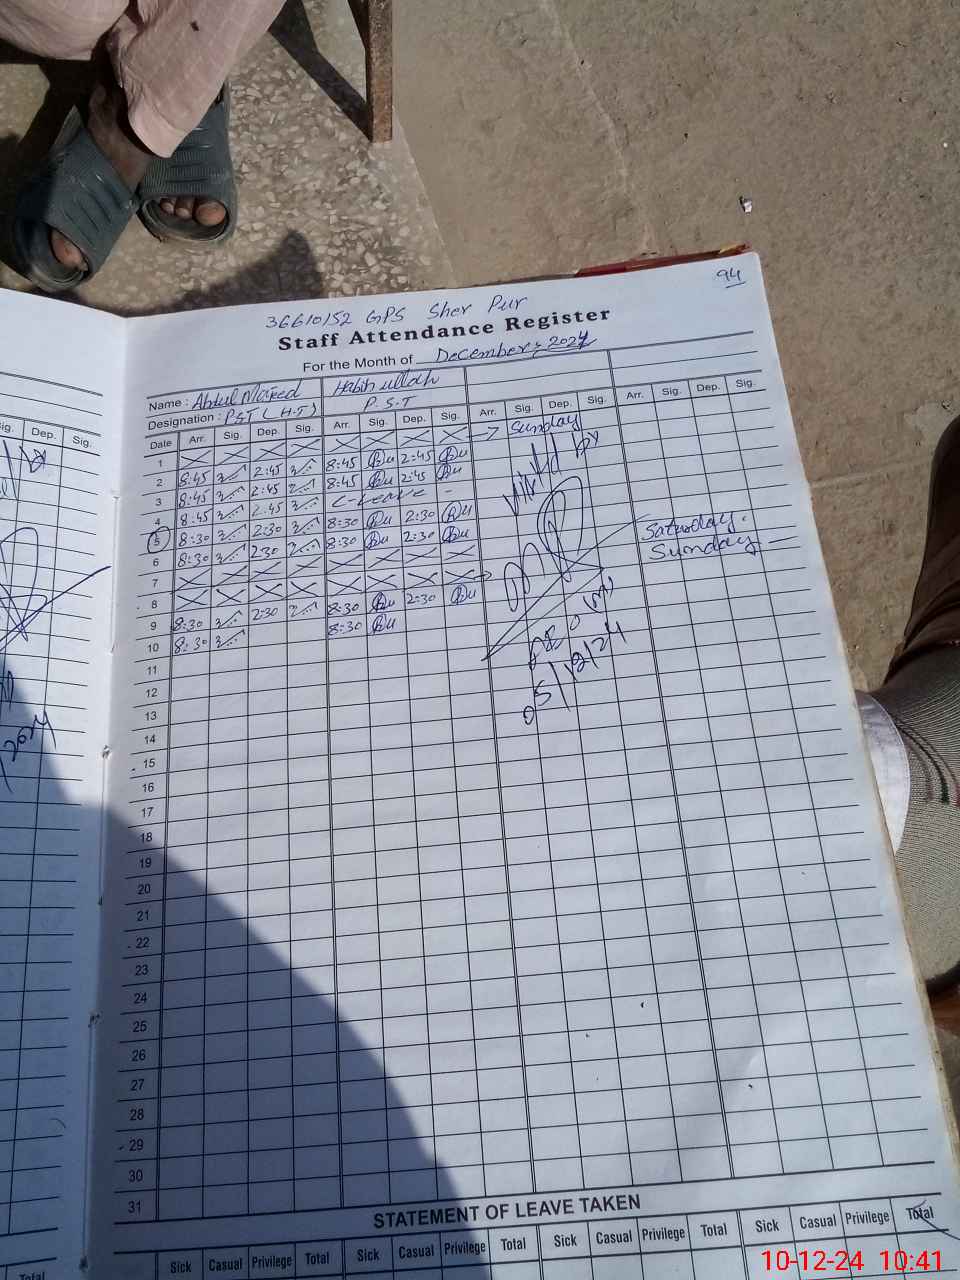 94
36610152 GPS Sher Pur
Staff Attendance Register
For the Month of December, 2024
Name : Abdul Majeed Habib ullah
Designation : PST (H.T) P.S.T
Date Arr. Sig. Dep. Sig. Arr. Sig. Dep. Sig. Arr. Sig. Dep. Sig. Arr. Sig. Dep. Sig.
1 Sunday
2 8:45 2:45 8:45 2:45
3 8:45 2:45 8:45 2:45
4 8:45 2:45 C-Leave -
5 8:30 2:30 8:30 2:30
6 8:30 2:30 8:30 2:30
7 Saturday.
8 Sunday
9 8:30 2:30 8:30 2:30
10 8:30 8:30
Visited by
AEO
05/12/24
11
12
13
14
15
16
17
18
19
20
21
22
23
24
25
26
27
28
29
30
31
STATEMENT OF LEAVE TAKEN
Sick Casual Privilege Total Sick Casual Privilege Total Sick Casual Privilege Total Sick Casual Privilege Total
Sig. Dep. Sig.
Total
10-12-24 10:41